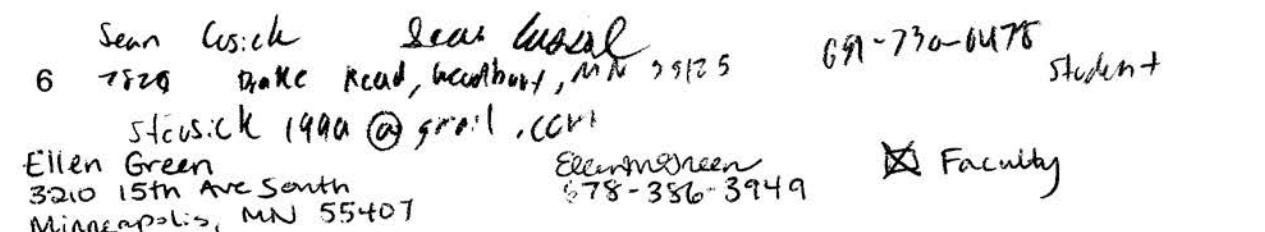 Sean Cusick Sean Cusick
6 7829 Drake Road, Woodbury, MN 55125 Student
stcusick 1990 @ gmail .com
Ellen Green Ellen M Green Faculty
3210 15th Ave South 678-386-3949
Minneapolis, MN 55407